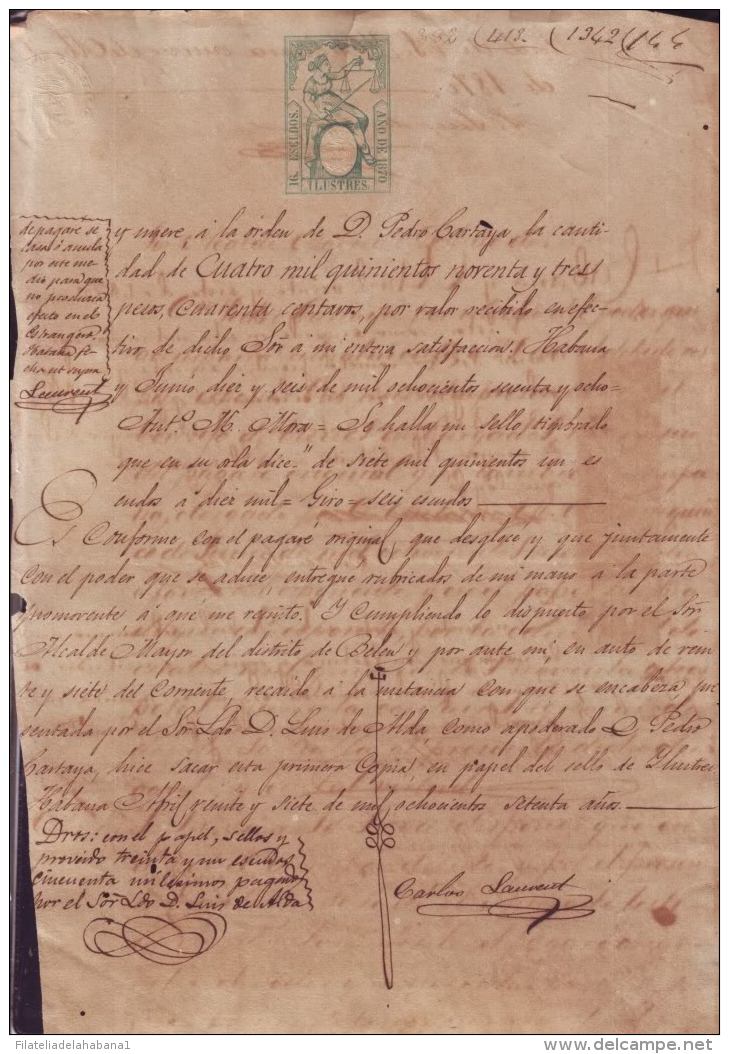 332 (413. (1342 (144
16. ESCUDOS.
AÑO DE 1870
ILUSTRES.
y nueve, á la órden de D. Pedro Cartaya, la canti-
dad de Cuatro mil quinientos noventa y tres
pesos, cuarenta centavos, por valor recibido en efec-
tivo de dicho Sōr á mi entera satisfaccion. Habana
y Junio diez y seis de mil ochocientos sesenta y ocho=
Antº. M. Mora= Se halla un sello timbrado
que en su orla dice "de siete mil quinientos un es
cudos á diez mil= Giro= seis escudos
de pagare se
por este me-
dio para que
no produzca
efecto en el
estrangero.
Habana fe-
cha ut supra
Laurent
Es Conforme con el pagaré original, que desglocé y que juntamente
con el poder que se aduce, entregue rubricados de mi mano á la parte
promovente á que me remito. Y cumpliendo lo dispuesto por el Sōr
Alcalde Mayor del distrito de Belen y por ante mi, en auto de vein
te y siete del corriente, recaido á la instancia con que se encabeza pre
sentada por el Sōr Ldo D. Luis de Alda, como apoderado D. Pedro
Cartaya, hice sacar esta primera Copia, en papel del sello de Ylustres
Habana Abril veinte y siete de mil ochocientos setenta años.
Drros: con el papel, sellos y
proveido treinta y un escudos
cincuenta milesimos pagados
por el Sōr Ldo D. Luis de Alda
Carlos Laurent
Filateliadelahabana1
delcampe.net